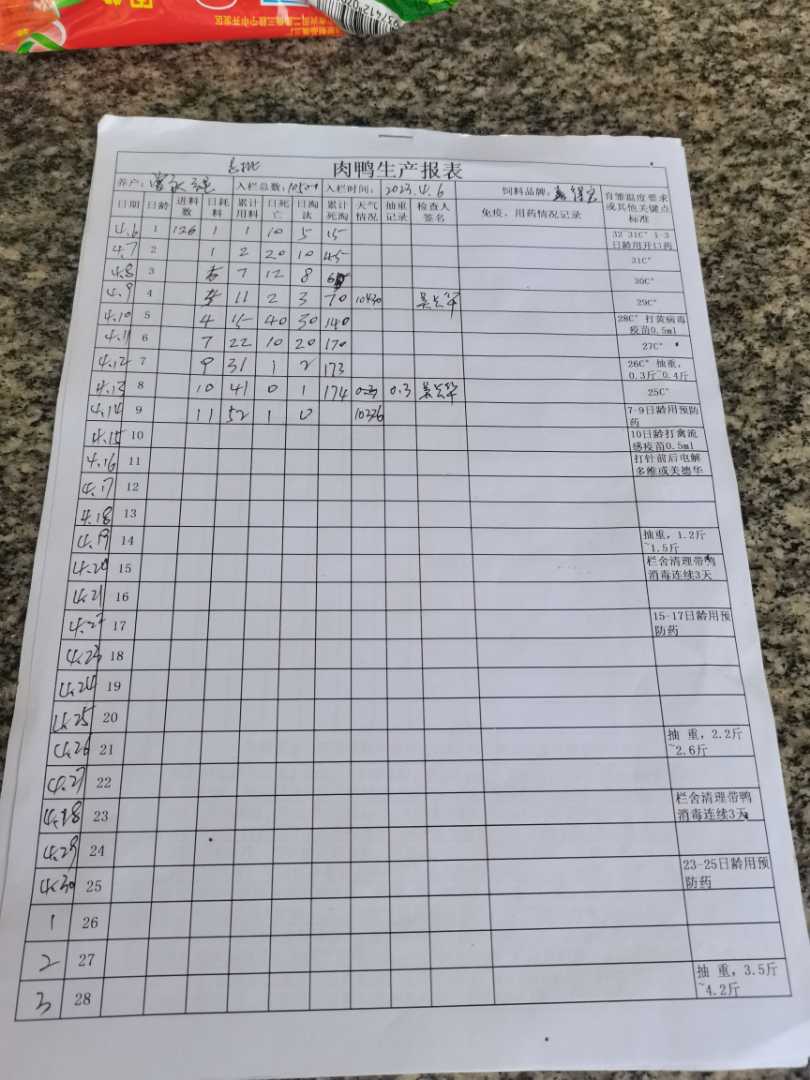 肉鸭生产报表
养户: 入栏总数: 入栏时间: 2023.4.6 饲料品牌:
日期 日龄 进料数 日耗料 累计用料 日死亡 日淘汰 累计死淘 天气情况 抽重记录 检查人签名 免疫、用药情况记录 育雏温度要求或其他关键点标准
4.6 1 126 1 1 10 5 15 32-31C° 1-3日龄用开口药
4.7 2 1 2 20 10 45 31C°
4.8 3 7 12 8 30C°
4.9 4 11 2 3 70 10430 29C°
4.10 5 4 15 40 30 140 28C° 打黄病毒疫苗0.5ml
4.11 6 7 22 10 20 170 27C°
4.12 7 9 31 1 2 173 26C° 抽重，0.3斤~0.4斤
4.13 8 10 41 0 1 174 0.3 25C°
4.14 9 11 52 1 0 10326 7-9日龄用预防药
4.15 10 10日龄打禽流感疫苗0.5ml
4.16 11 打针前后电解多维或美德华
4.17 12
4.18 13
4.19 14 抽重，1.2斤~1.5斤
4.20 15 栏舍清理带鸭消毒连续3天
4.21 16
4.22 17 15-17日龄用预防药
4.23 18
4.24 19
4.25 20
4.26 21 抽 重，2.2斤~2.6斤
4.27 22
4.28 23 栏舍清理带鸭消毒连续3天
4.29 24
4.30 25 23-25日龄用预防药
1 26
2 27
3 28 抽 重，3.5斤~4.2斤